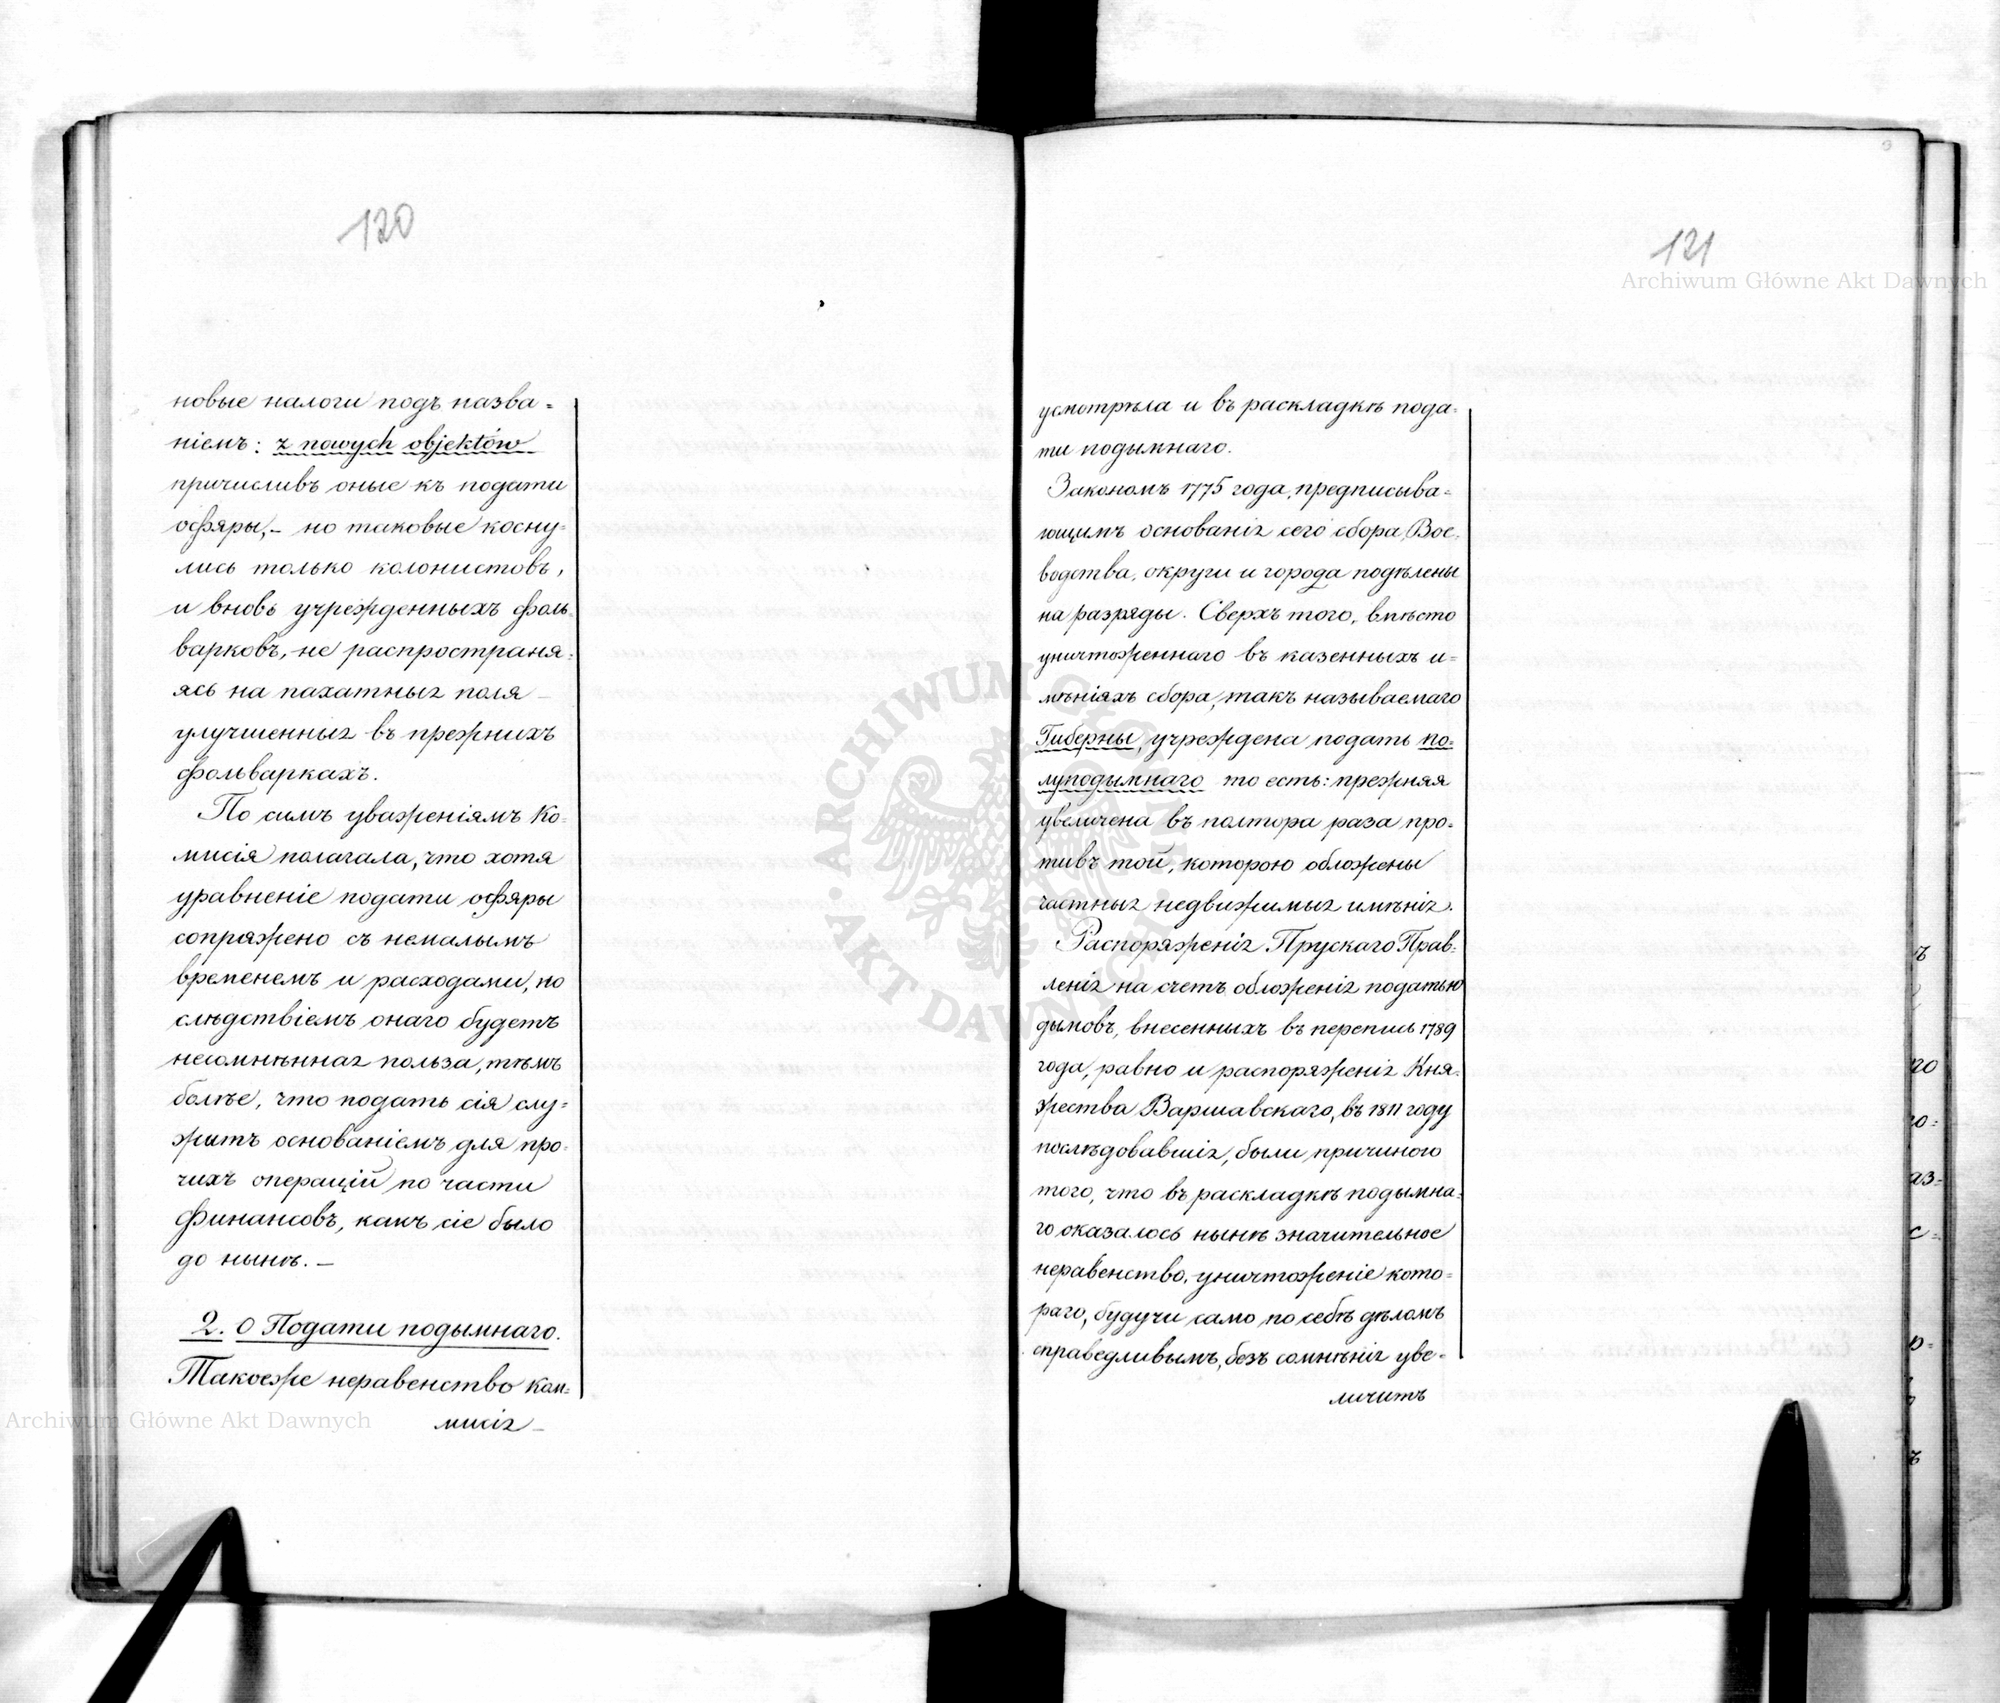 120
новые налоги подъ назва=
ніемъ: z nowych objektów
причисливъ оные къ подати
офяры,– но таковые косну=
лись только колонистовъ,
и вновь учрежденныхъ фоль=
варковъ, не распространя=
ясь на пахатныя поля
улучшенныя въ прежнихъ
фольваркахъ.
По симъ уваженіямъ Ко=
мисія полагала, что хотя
уравненіе подати офяры
сопряжено съ немалымъ
временемъ и расходами, но
слѣдствіемъ онаго будетъ
несомнѣнная польза, тѣмъ
болѣе, что подать сія слу=
житъ основаніемъ для про=
чихъ операцій по части
Финансовъ, какъ сіе было
до нынѣ. –
2. О Подати подымнаго.
Такоеже неравенство Ком=
мисія
121
усмотрѣла и въ раскладкѣ пода=
ти подымнаго.
Закономъ 1775 года, предписыва=
ющимъ основанія сего сбора, Вое=
водства, округи и города подѣлены
на разряды. Сверхъ того, вмѣсто
уничтоженнаго въ казенныхъ и=
мѣніяхъ сбора, такъ называемаго
Гиберны, учреждена подать по=
луподымнаго то есть: прежняя
увеличена въ полтора раза про=
тивъ той, которою обложены
частныя недвижимыя имѣнія.
Распоряженія Прускаго Прав=
ленія на счетъ обложенія податью
дымовъ, внесенныхъ въ перепись 1789
года, равно и распоряженія Кня=
жества Варшавскаго, въ 1811 году
послѣдовавшія, были причиною
того, что въ раскладкѣ подымна=
го оказалось нынѣ значительное
неравенство, уничтоженіе кото=
раго, будучи само по себѣ дѣломъ
справедливымъ, безъ сомнѣнія уве=
личитъ
Archiwum Główne Akt Dawnych
Archiwum Główne Akt Dawnych
ARCHIWUM GŁÓWNE AKT DAWNYCH